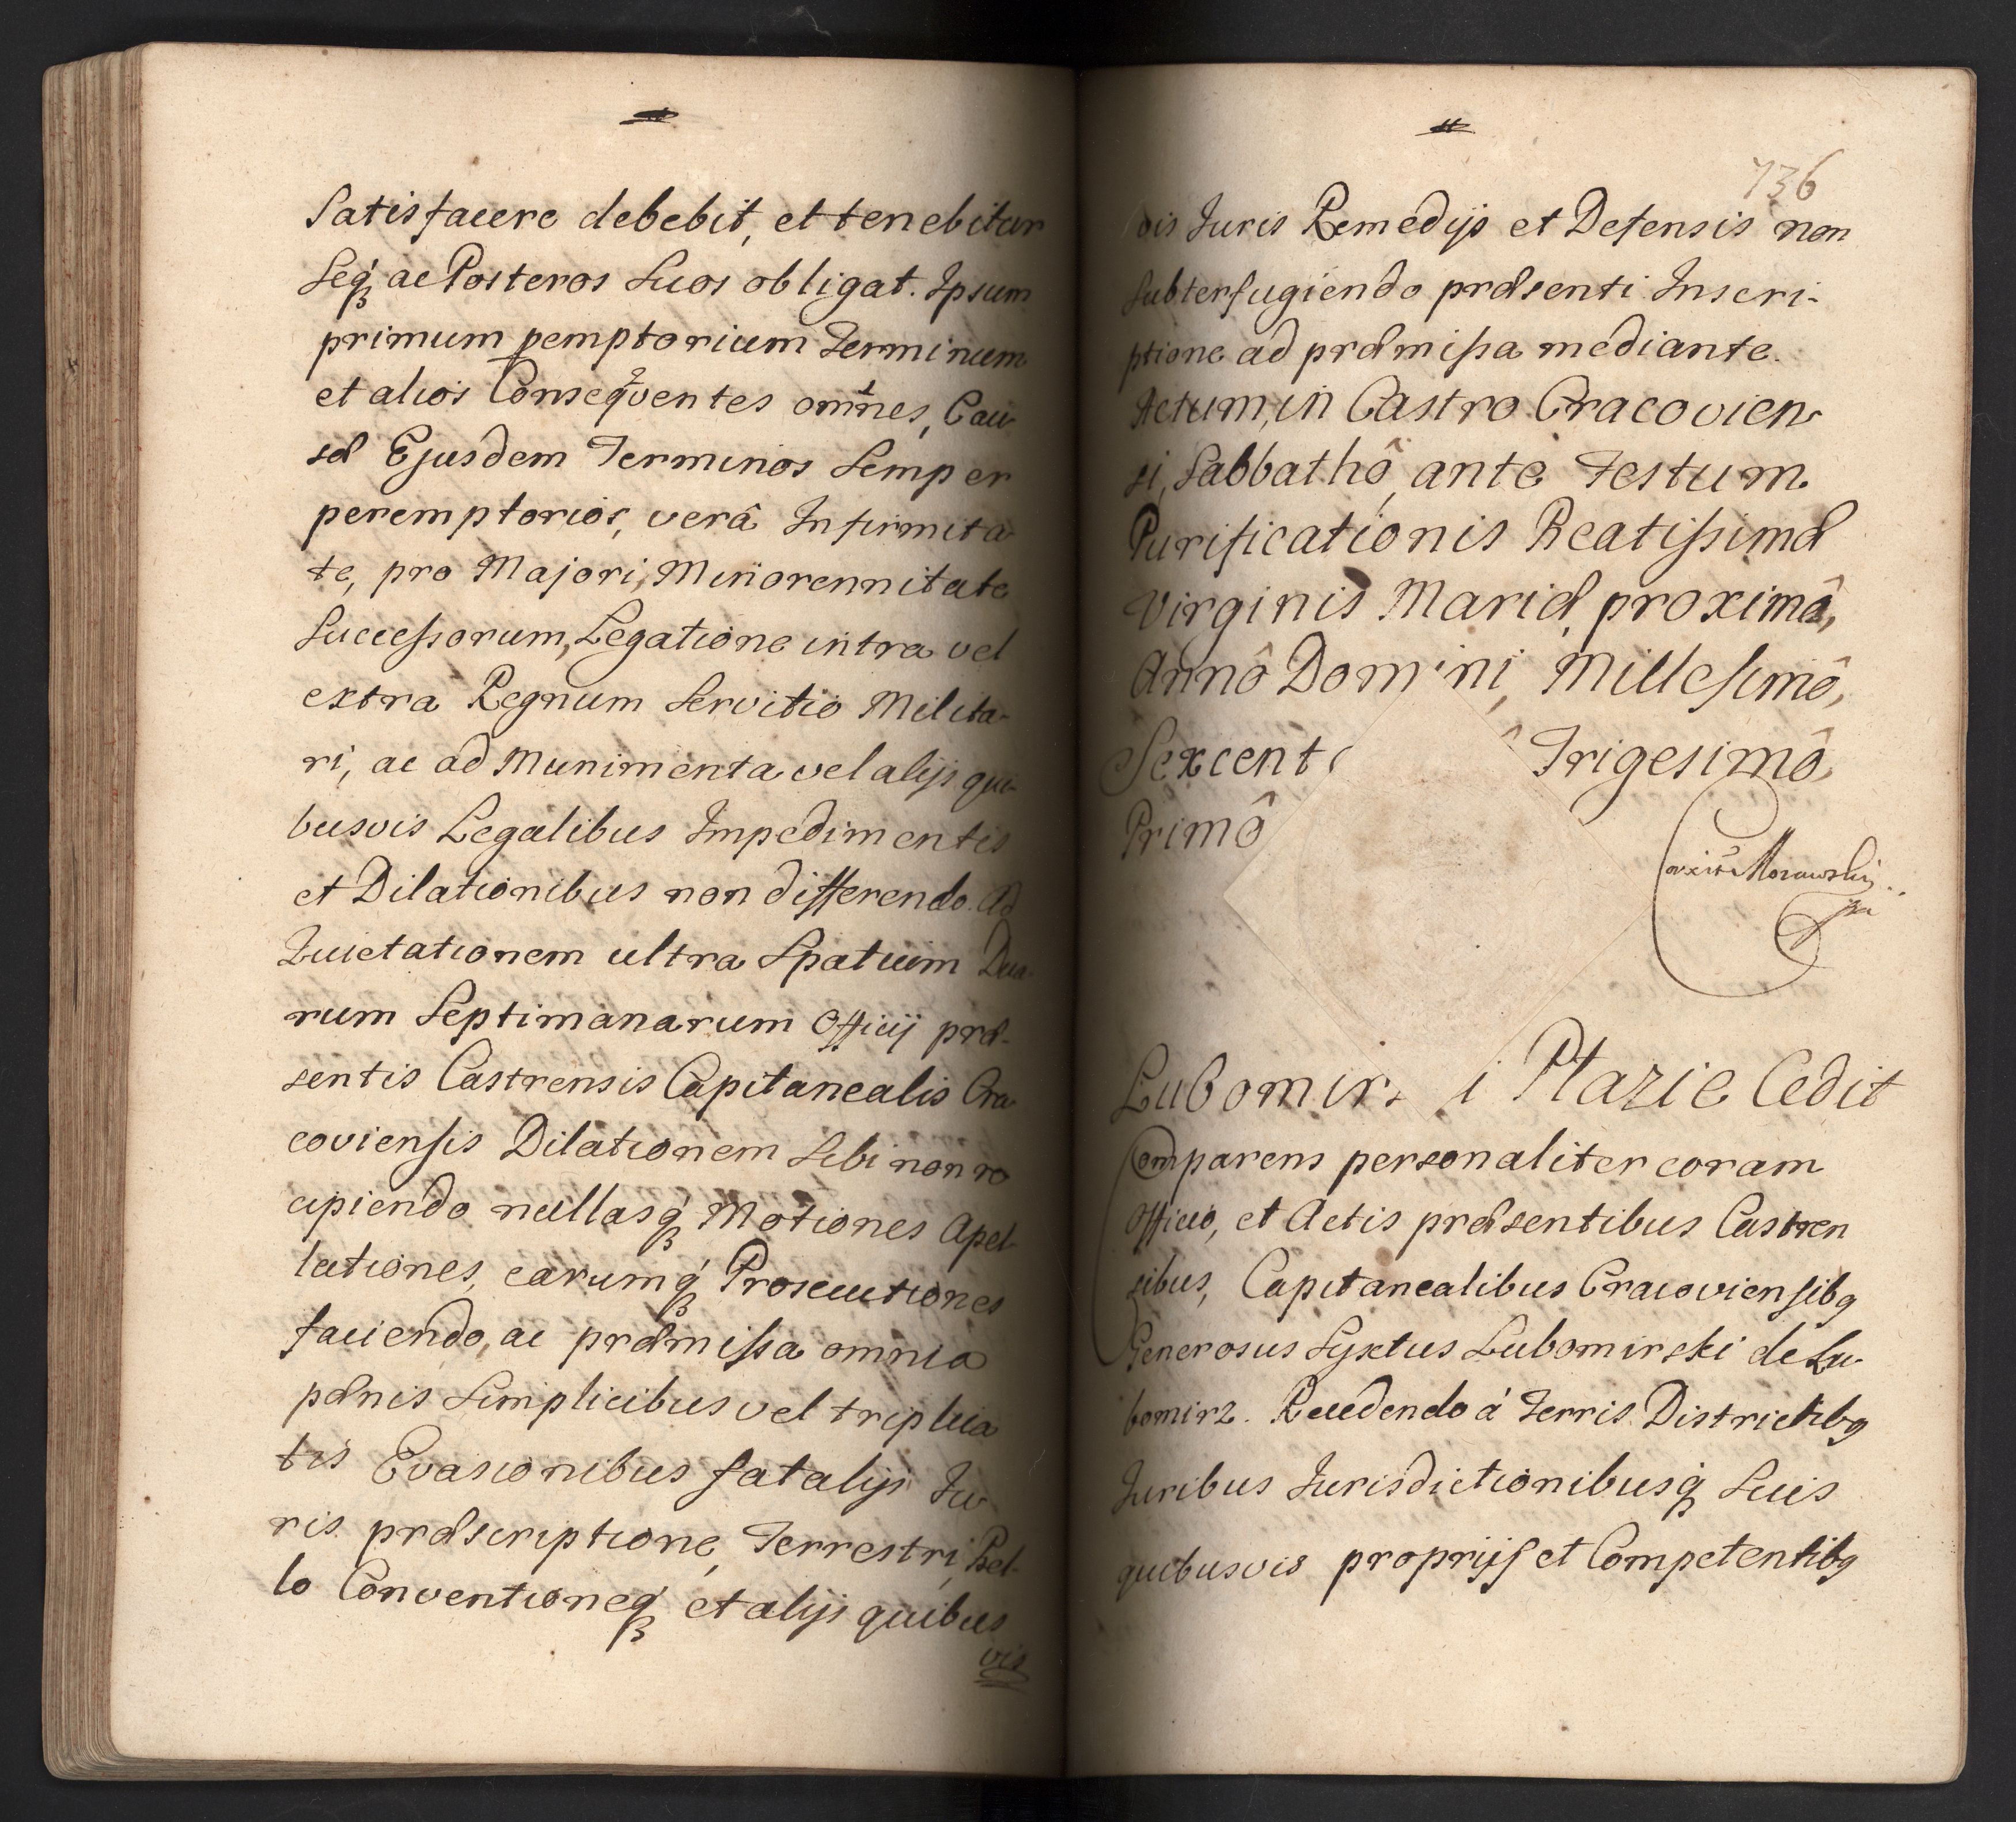 Satisfacere debebit, et tenebitur
Seq́ꝫ ac Posteros Suos obligat. Ipsum
primum pemptorium Terminum
et alios Conseq̃ventes omnes, Cau-
sæ Ejusdem Terminos Semper
peremptorios, verâ Infirmita-
te, pro Majori, Minorennitate
Successorum, Legatione intra vel
extra Regnum Servitio Milita-
ri, ac ad Munimenta vel alijs qui-
busvis Legalibus Impedimentis
et Dilationibus non differendo. Ad
Quietationem ultra Spatium Dua-
rum Septimanarum Officij præ-
sentis Castrensis Capitanealis Cra-
coviensis Dilationem Sibi non re
cipiendo nullasq́ꝫ Motiones Apel-
lationes, earumq́ꝫ Prosecutiones
faciendo, ac præmissa omnia
pænis Simplicibus vel triplica
tis Evasionibus fatalijs Ju-
ris præscriptione, Terrestri, Bel-
lo Conventioneq́ꝫ et alijs quibus
vis
736
vis Juris Remedijs et Defensis non
Subterfugiendo præsenti Inscri-
ptione ad præmissa mediante.
Actum, in Castro Cracovien
si, Sabbathô, ante Festum
Purificationis Beatissimæ
Virginis Mariæ, proximô,
Annô Domini, Millesimô,
Sexcent Trigesimô,
Primô
Morawski
Lubomir i Płazie Cedit
Comparens personaliter coram
Officio, et Actis præsentibus Castren
sibus, Capitanealibus Cracoviensibꝫ
Generosus Syxtus Lubomirski de Lu-
bomirz. Recedendo á Terris Districtibꝫ
Juribus Jurisdictionibusq́ꝫ Suis
quibusvis proprijs et Competentibꝫ